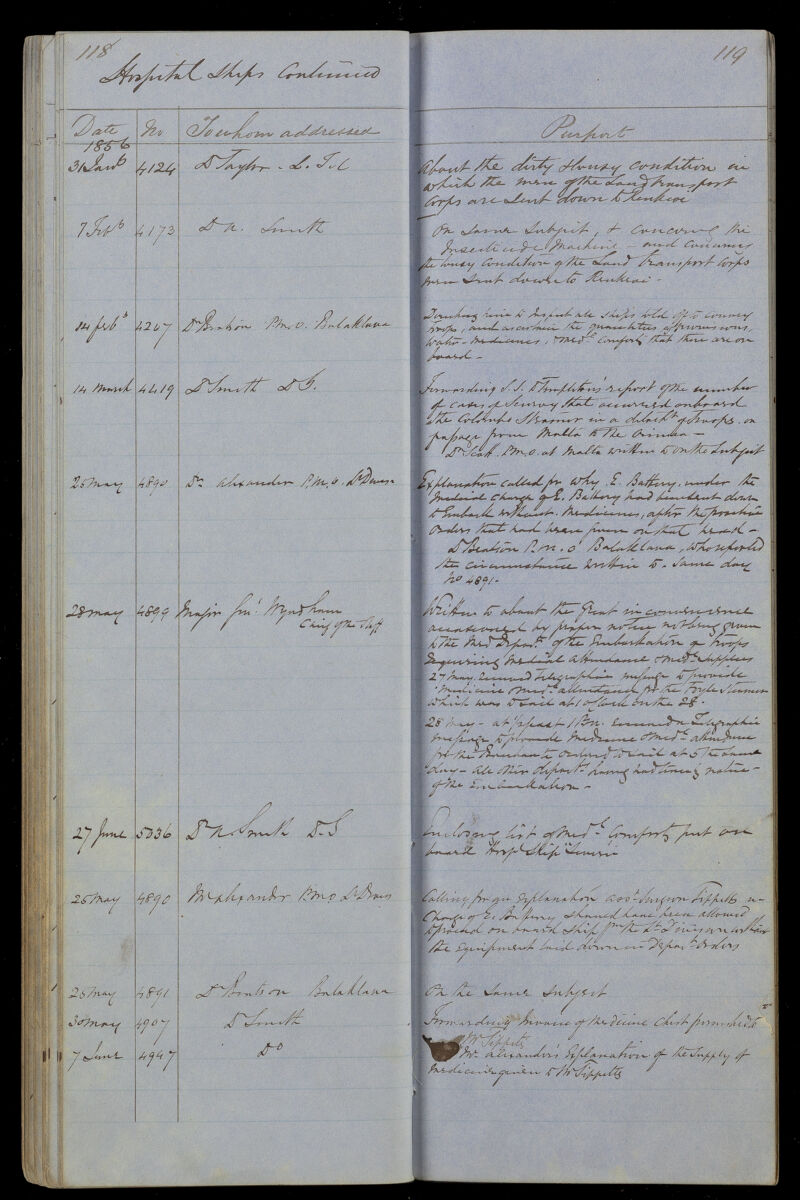 118
Hospital Ships Continued
Date No To whom addressed
1856
31 Jany 4124 Dr Taylor - L. T. C
7 Feby 4173 Dr A. Smith
14 feby 4207 Dr Beatson P.M.O. Balaklava
14 March 4419 Dr Smith D G.
25 May 4890 Dr Alexander P.M.O. Lt Divisn
28 May 4899 Major Genl Wyndham
Chief of the Staff
27 June 5036 Dr A. Smith D. G
25 May 4890 Mr Alexander P.M.O Lt Divis
25 May 4891 Dr Beatson Balaklava
30 May 4907 Dr Smith
7 June 4947 Do
119
Purport
About the dirty & lousy condition in
which the men of the Land transport
Corps are sent down to Renkioi
On same Subject, & concerng the
Insecticide Machine - and concerning
the lousy condition of the Land Transport Corps
men sent down to Renkioi -
to inspect all ships told off to convey
troops, and ascertain the quantities of provisions,
water - medicines, & medl Comforts that there are on
board -
Forwarding S. S. Dr Templeton's report of the number
of cases of Scurvy that occurred on board
the Colombo Steamer in a detacht of troops on
passage from Malta to the Crimea -
Dr P.M.O. at Malta written to on the Subject
Explanation called for why E. Battery, under the
Medical charge of E. Battery had been sent down
to Embark without Medicines, after the positive
orders that had been given on that head -
Dr Beatson P.M.O Balaklava, who reported
the circumstance written to - same day
No 4891 -
Written to about the Great inconvenience
occasioned by proper notice not being given
to the Med Depart of the Embarkation of troops
requiring medical attendance & medl supplies
27 May received telegraphic message to provide
medicine & medl attendance for the Steamer
which was to sail at 1 o'Clock on the 28 -
28 May - at past 1 P.M. received a telegraphic
message to provide medicine & medl attendance
for the ordered to sail at 5 the same
day - all other departs having had timely notice
of the Embarkation -
Enclosing list of Medl Comforts put on
board Hospl Ship
Calling for an Explanation asst Surgeon Tippetts in
Charge of E. Battery should have been allowed
to proceed on board Ship from the Lt Division without
the Equipment laid down in Depart Orders
On the same subject
Forwarding Invoice of Medicine Chest furnished to
Mr Tippetts
Mr Alexander's Explanation of the Supply of
Medicine given to Mr Tippetts